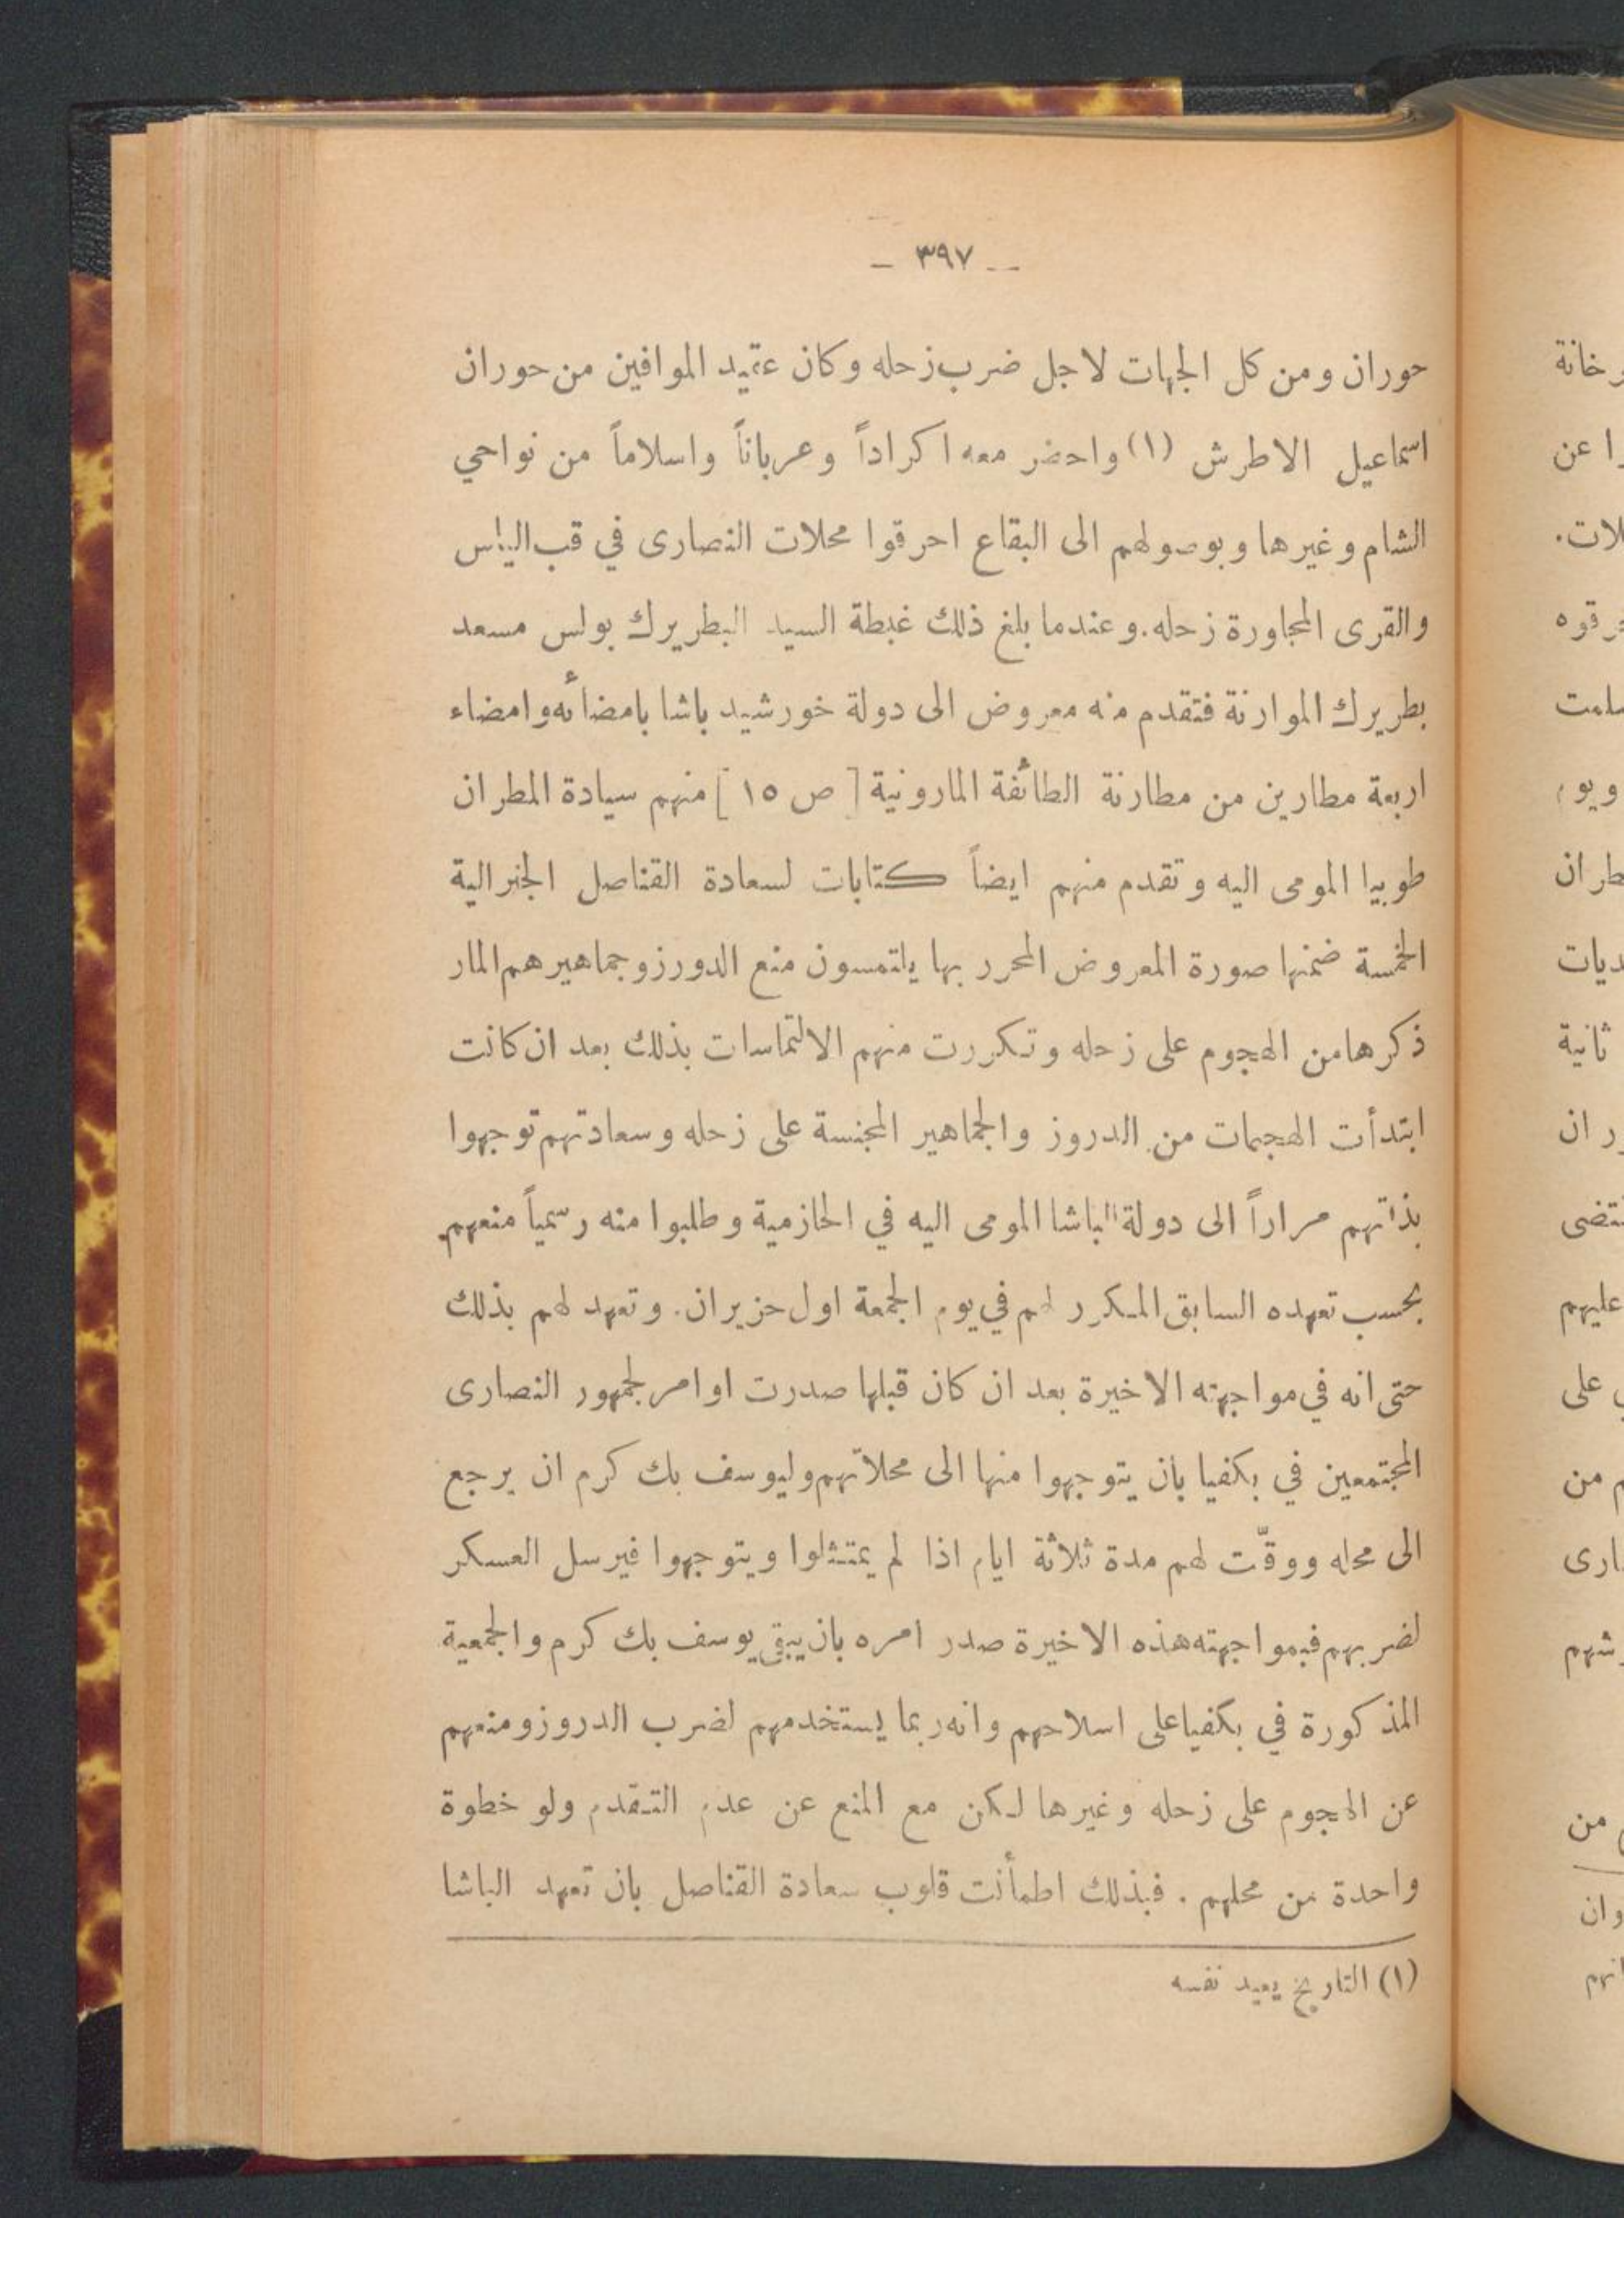 – ٣٩٧ –
حوران ومن كل الجهات لاجل ضرب زحله وكان عقيد الموافين من حوران
اسماعيل الاطرش (١) واحضر معه اكراداً وعرباناً واسلاماً من نواحي
الشام وغيرها وبوصولهم الى البقاع احرقوا محلات النصارى في قب الياس
والقرى المجاورة زحله. وعندما بلغ ذلك غبطة السيد البطريرك بولس مسعد
بطريرك الموارنة فتقدم منه معروض الى دولة خورشيد باشا بامضائه وامضاء
اربعة مطارين من مطارنة الطائفة المارونية [ ص ١٥ ] منهم سيادة المطران
طوبيا المومى اليه وتقدم منهم ايضاً كتابات لسعادة القناصل الجنرالية
الخمسة ضمنها صورة المعروض المحرر بها يلتمسون منع الدورز وجماهيرهم المار
ذكرها من الهجوم على زحله وتكررت منهم الالتماسات بذلك بعد ان كانت
ابتدأت الهجمات من الدروز والجماهير المجنسة على زحله وسعادتهم توجهوا
بذاتهم مراراً الى دولة الباشا المومى اليه في الحازمية وطلبوا منه رسمياً منعهم
بحسب تعهده السابق المكرر لهم في يوم الجمعة اول حزيران. وتعهد لهم بذلك
حتى انه في مواجهته الاخيرة بعد ان كان قبلها صدرت اوامر لجمهور النصارى
المجتمعين في بكفيا بان يتوجهوا منها الى محلاتهم وليوسف بك كرم ان يرجع
الى محله ووقّت لهم مدة ثلاثة ايام اذا لم يمتثلوا ويتوجهوا فيرسل العسكر
لضربهم فبمواجهته هذه الاخيرة صدر امره بان يبقى يوسف بك كرم والجمعية
المذكورة في بكفيا على اسلاحهم وانه ربما يستخدمهم لضرب الدروز ومنعهم
عن الهجوم على زحله وغيرها لكن مع المنع عن عدم التقدم ولو خطوة
واحدة من محلهم . فبذلك اطمأنت قلوب سعادة القناصل بان تعهد الباشا
(١) التاريخ يعيد نفسه